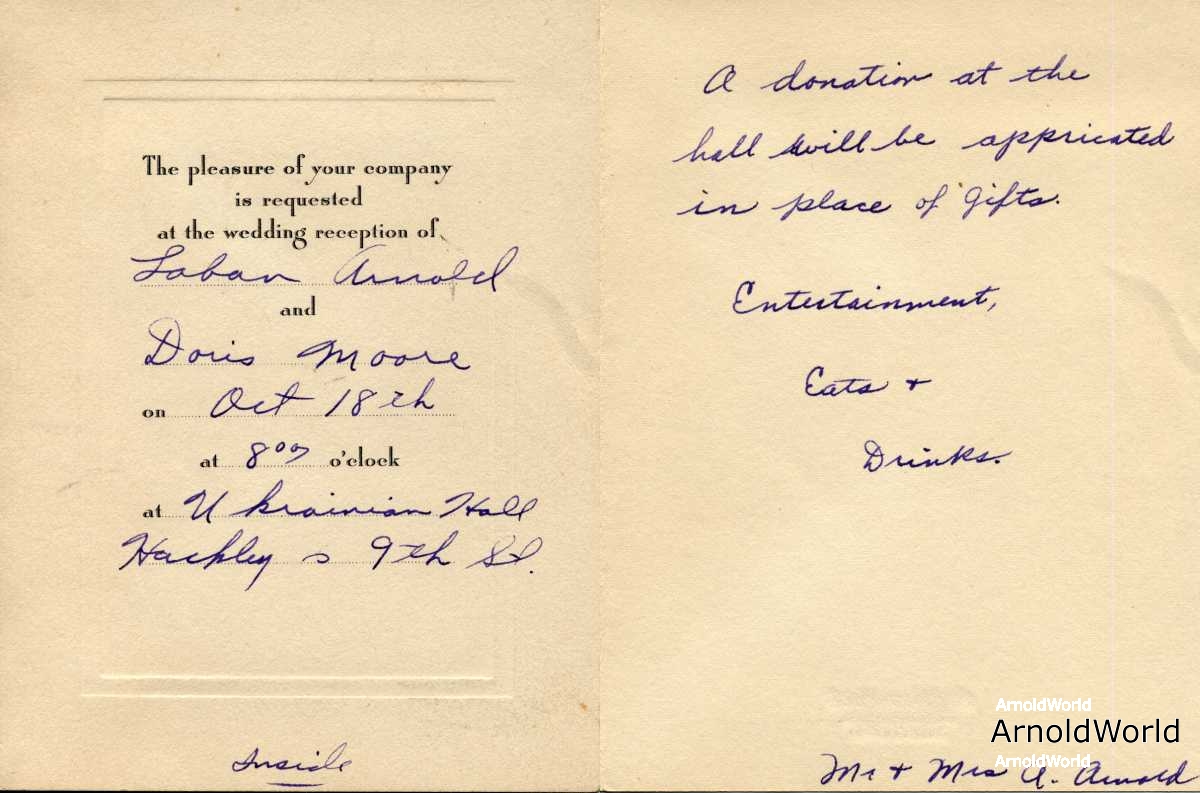 The pleasure of your company
is requested
at the wedding reception of
Laban Arnold
and
Doris Moore
on Oct 18th
at 8⁰⁰ o'clock
at Ukrainian Hall
Hackley & 9th St.
Inside
A donation at the
hall will be appricated
in place of gifts.
Entertainment,
Eats +
Drinks.
ArnoldWorld
ArnoldWorld
ArnoldWorld
Mr + Mrs A. Arnold